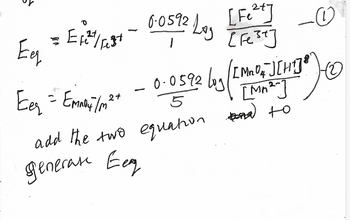 E_eq = E°_Fe²⁺/Fe³⁺ − 0.0592/1 Log [Fe²⁺]/[Fe³⁺] —①
E_eq = E_MnO₄⁻/m²⁺ − 0.0592/5 log([MnO₄⁻][H⁺]⁸/[Mn²⁻]) —②
add the two equation to
generate Eeq